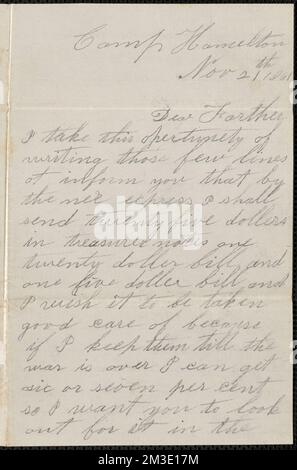 Camp Hamelton
Nov 21th 1861
Dear Farther
I take this opertunety of
writing those few lines
ot inform you that by
the nex express I shall
send twenty five dollers
in treasures notes one
twenty doller bill and
one five doller bill and
I wish it to be taken
good care of because
if I keep them till the
war is over I can get
sic or seven per cent
so I want you to look
out for it in the
alamy
Image ID: 2M3E17M
www.alamy.com